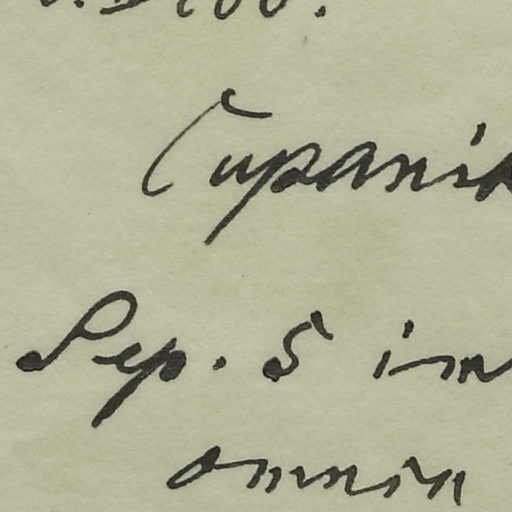 Cupani
Sep. 5 im
omnin